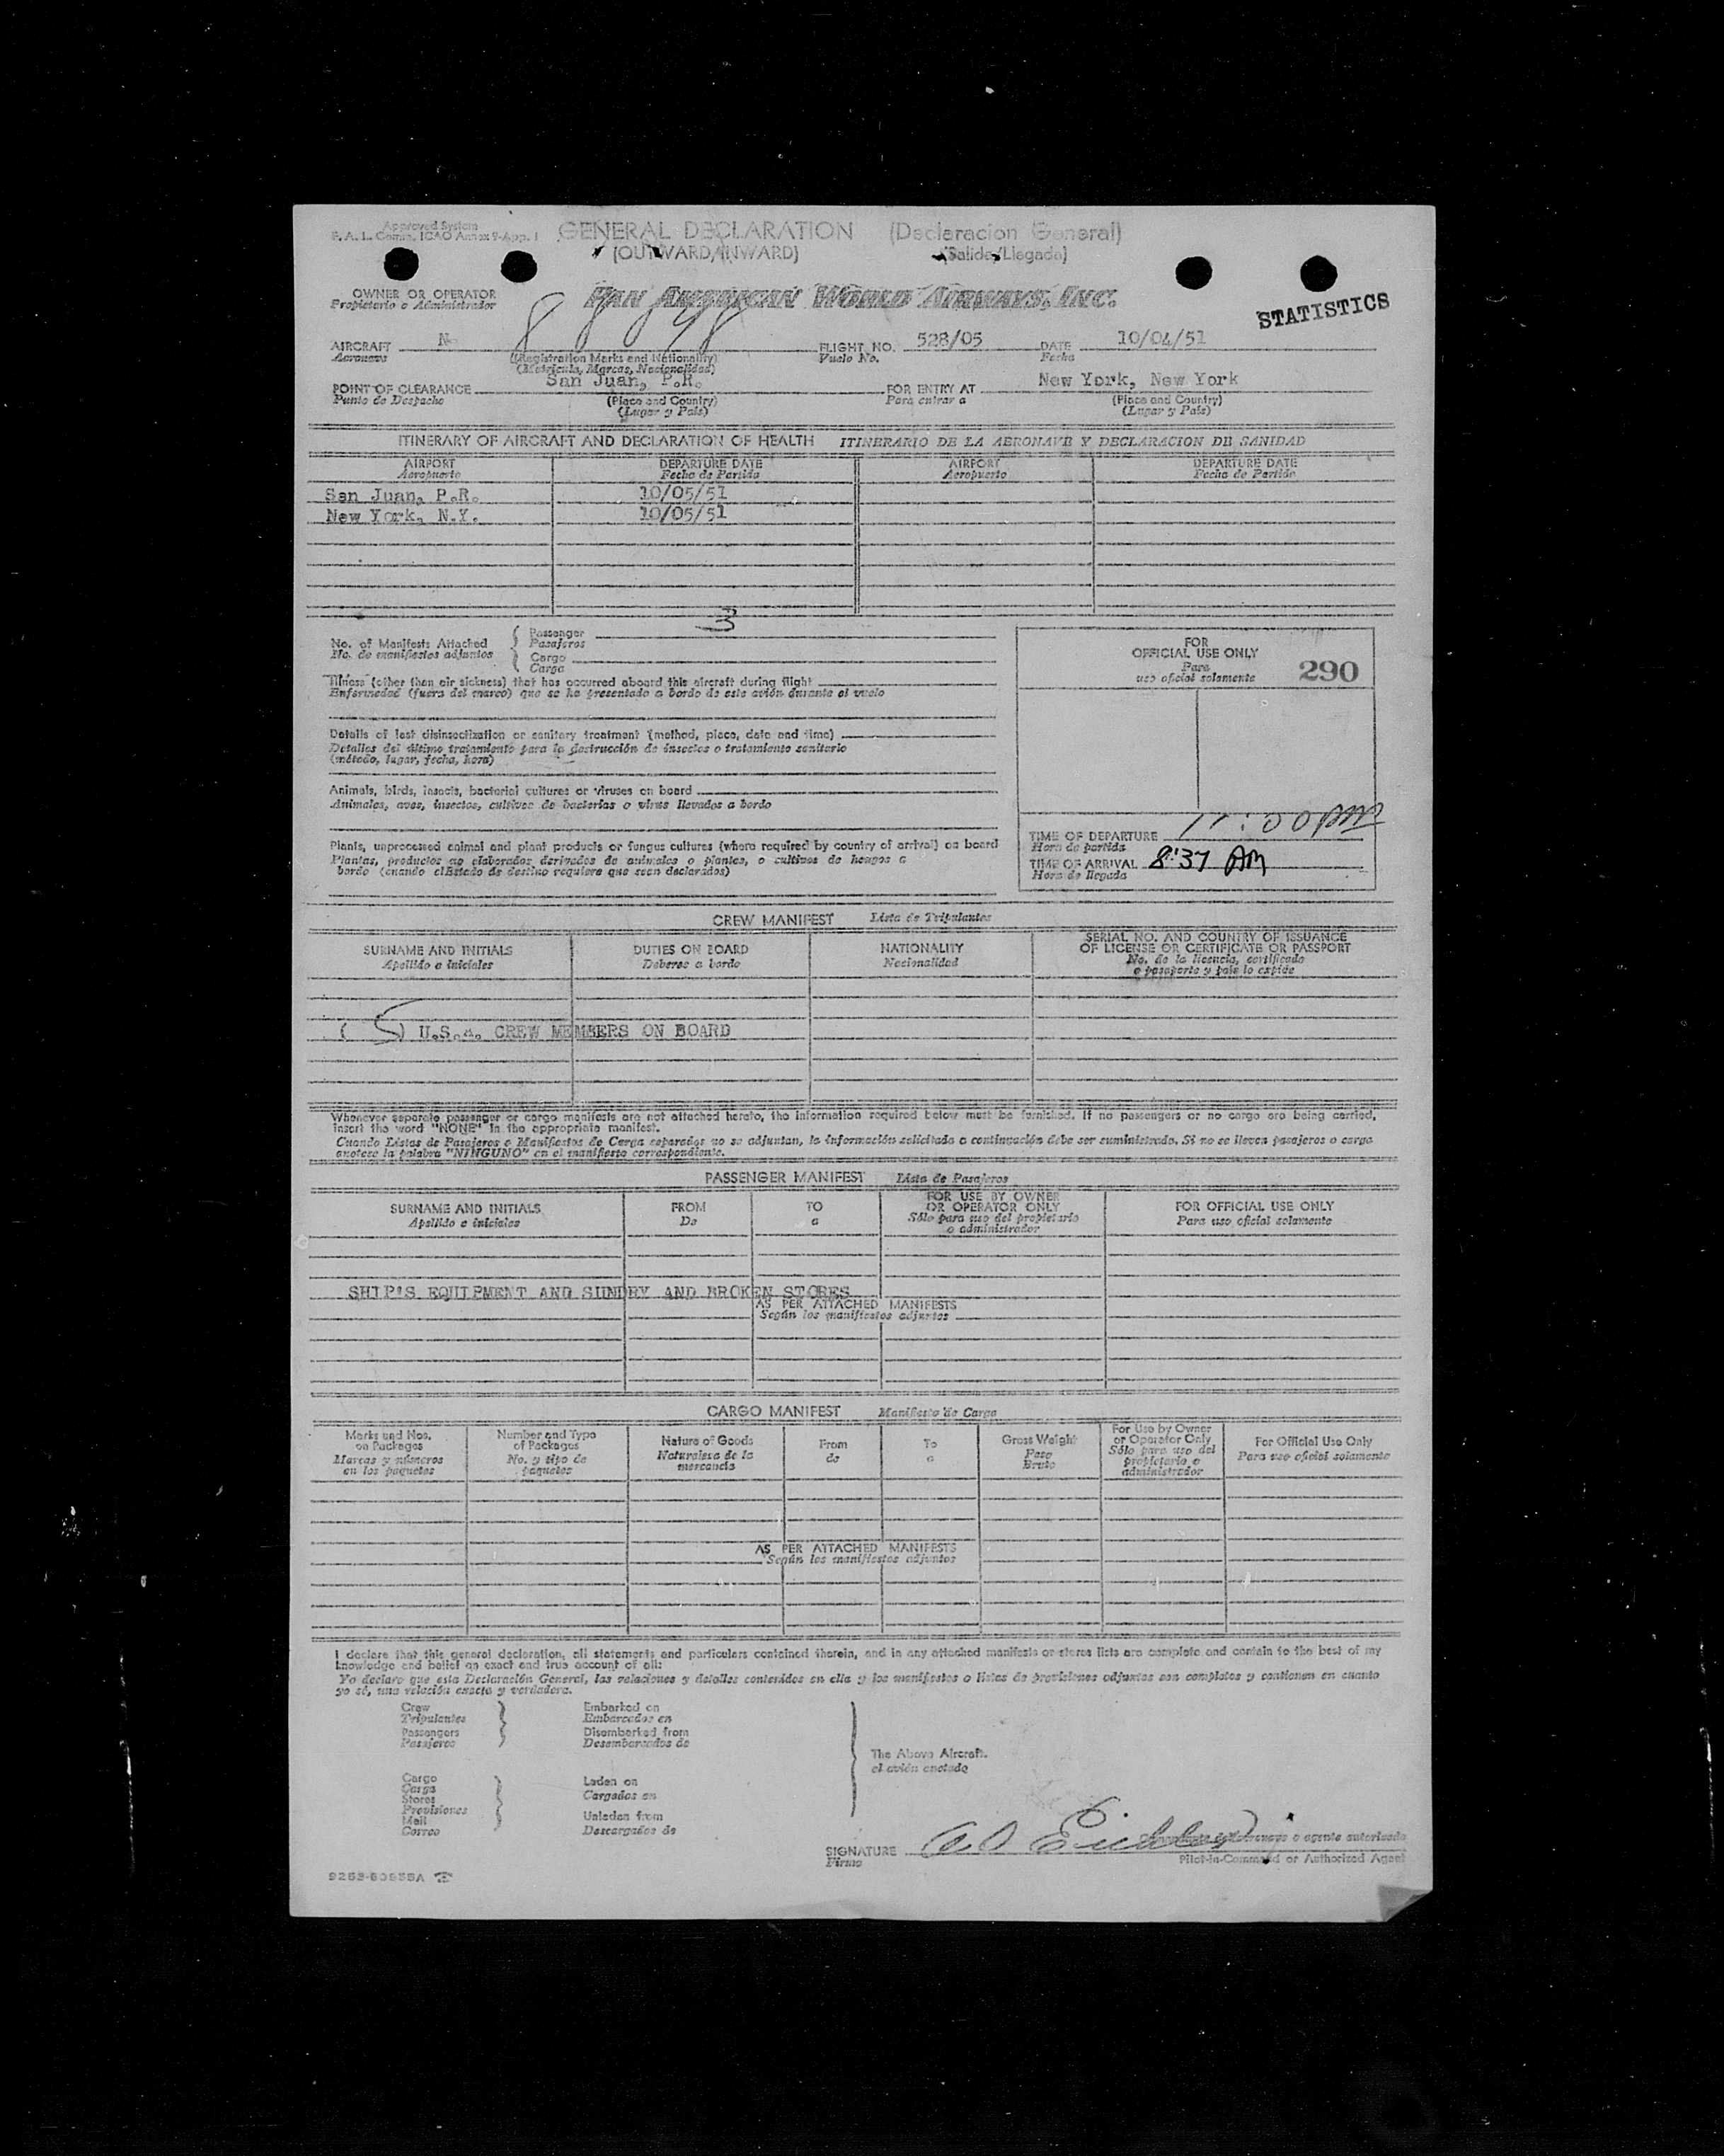 Approved System
F. A. L. Comm. ICAO Annex 9-App. 1
GENERAL DECLARATION (Declaracion General)
(OUTWARD/INWARD) (Salida/Llegada)
OWNER OR OPERATOR
Propietario o Administrador
PAN AMERICAN WORLD AIRWAYS, INC.
STATISTICS
AIRCRAFT N FLIGHT NO. 528/05 DATE 10/04/51
Aeronave Vuelo No. Fecha
(Registration Marks and Nationality)
(Matricula, Marcas, Nacionalidad)
POINT OF CLEARANCE San Juan, P.R. FOR ENTRY AT New York, New York
Punto de Despacho (Place and Country) Para entrar a (Place and Country)
(Lugar y País) (Lugar y País)
ITINERARY OF AIRCRAFT AND DECLARATION OF HEALTH ITINERARIO DE LA AERONAVE Y DECLARACION DE SANIDAD
AIRPORT DEPARTURE DATE AIRPORT DEPARTURE DATE
Aeropuerto Fecha de Partida Aeropuerto Fecha de Partida
San Juan, P.R. 10/05/51
New York, N.Y. 10/05/51
No. of Manifests Attached
No. de manifiestos adjuntos
Passenger 3
Pasajeros
Cargo
Carga
Illness (other than air sickness) that has occurred aboard this aircraft during flight
Enfermedad (fuera del mareo) que se ha presentado a bordo de este avión durante el vuelo
Details of last disinsectization or sanitary treatment (method, place, date and time)
Detalles del último tratamiento para la destrucción de insectos o tratamiento sanitario
(método, lugar, fecha, hora)
Animals, birds, insects, bacterial cultures or viruses on board
Animales, aves, insectos, cultivos de bacterias o virus llevados a bordo
Plants, unprocessed animal and plant products or fungus cultures (where required by country of arrival) on board
Plantas, productos no elaborados derivados de animales o plantas, o cultivos de hongos a
bordo (cuando el Estado de destino requiere que sean declarados)
FOR
OFFICIAL USE ONLY
Para
uso oficial solamente
290
TIME OF DEPARTURE 11:00 PM
Hora de partida
TIME OF ARRIVAL 8:37 AM
Hora de llegada
CREW MANIFEST Lista de Tripulantes
SURNAME AND INITIALS DUTIES ON BOARD NATIONALITY SERIAL NO. AND COUNTRY OF ISSUANCE
OF LICENSE OR CERTIFICATE OR PASSPORT
Apellido e iniciales Deberes a bordo Nacionalidad No. de la licencia, certificado
o pasaporte y país lo expide
( 5) U.S.A. CREW MEMBERS ON BOARD
Whenever separate passenger or cargo manifests are not attached hereto, the information required below must be furnished. If no passengers or no cargo are being carried,
insert the word "NONE" in the appropriate manifest.
Cuando Listas de Pasajeros o Manifiestos de Carga separados no se adjuntan, la información solicitada a continuación debe ser suministrada. Si no se llevan pasajeros o carga
anótese la palabra "NINGUNO" en el manifiesto correspondiente.
PASSENGER MANIFEST Lista de Pasajeros
SURNAME AND INITIALS FROM TO FOR USE BY OWNER
OR OPERATOR ONLY FOR OFFICIAL USE ONLY
Apellido e iniciales De a Sólo para uso del propietario
o administrador Para uso oficial solamente
SHIP'S EQUIPMENT AND SUNDRY AND BROKEN STORES
AS PER ATTACHED MANIFESTS
Según los manifiestos adjuntos
CARGO MANIFEST Manifiesto de Carga
Marks and Nos.
on Packages
Marcas y números
en los paquetes
Number and Type
of Packages
No. y tipo de
paquetes
Nature of Goods
Naturaleza de la
mercancía
From
de
To
a
Gross Weight
Peso
Bruto
For Use by Owner
or Operator Only
Sólo para uso del
propietario o
administrador
For Official Use Only
Para uso oficial solamente
AS PER ATTACHED MANIFESTS
Según los manifiestos adjuntos
I declare that this general declaration, all statements and particulars contained therein, and in any attached manifests or stores lists are complete and contain to the best of my
knowledge and belief an exact and true account of all:
Yo declaro que esta Declaración General, las relaciones y detalles contenidos en ella y los manifiestos o listas de provisiones adjuntas son completos y contienen en cuanto
yo sé, una relación exacta y verdadera.
Crew
Tripulantes
Passengers
Pasajeros
Embarked on
Embarcados en
Disembarked from
Desembarcados de
Cargo
Carga
Stores
Provisiones
Mail
Correo
Laden on
Cargados en
Unladen from
Descargados de
The Above Aircraft.
el avión anotado
SIGNATURE
Firma
o agente autorizado
Pilot-in-Command or Authorized Agent